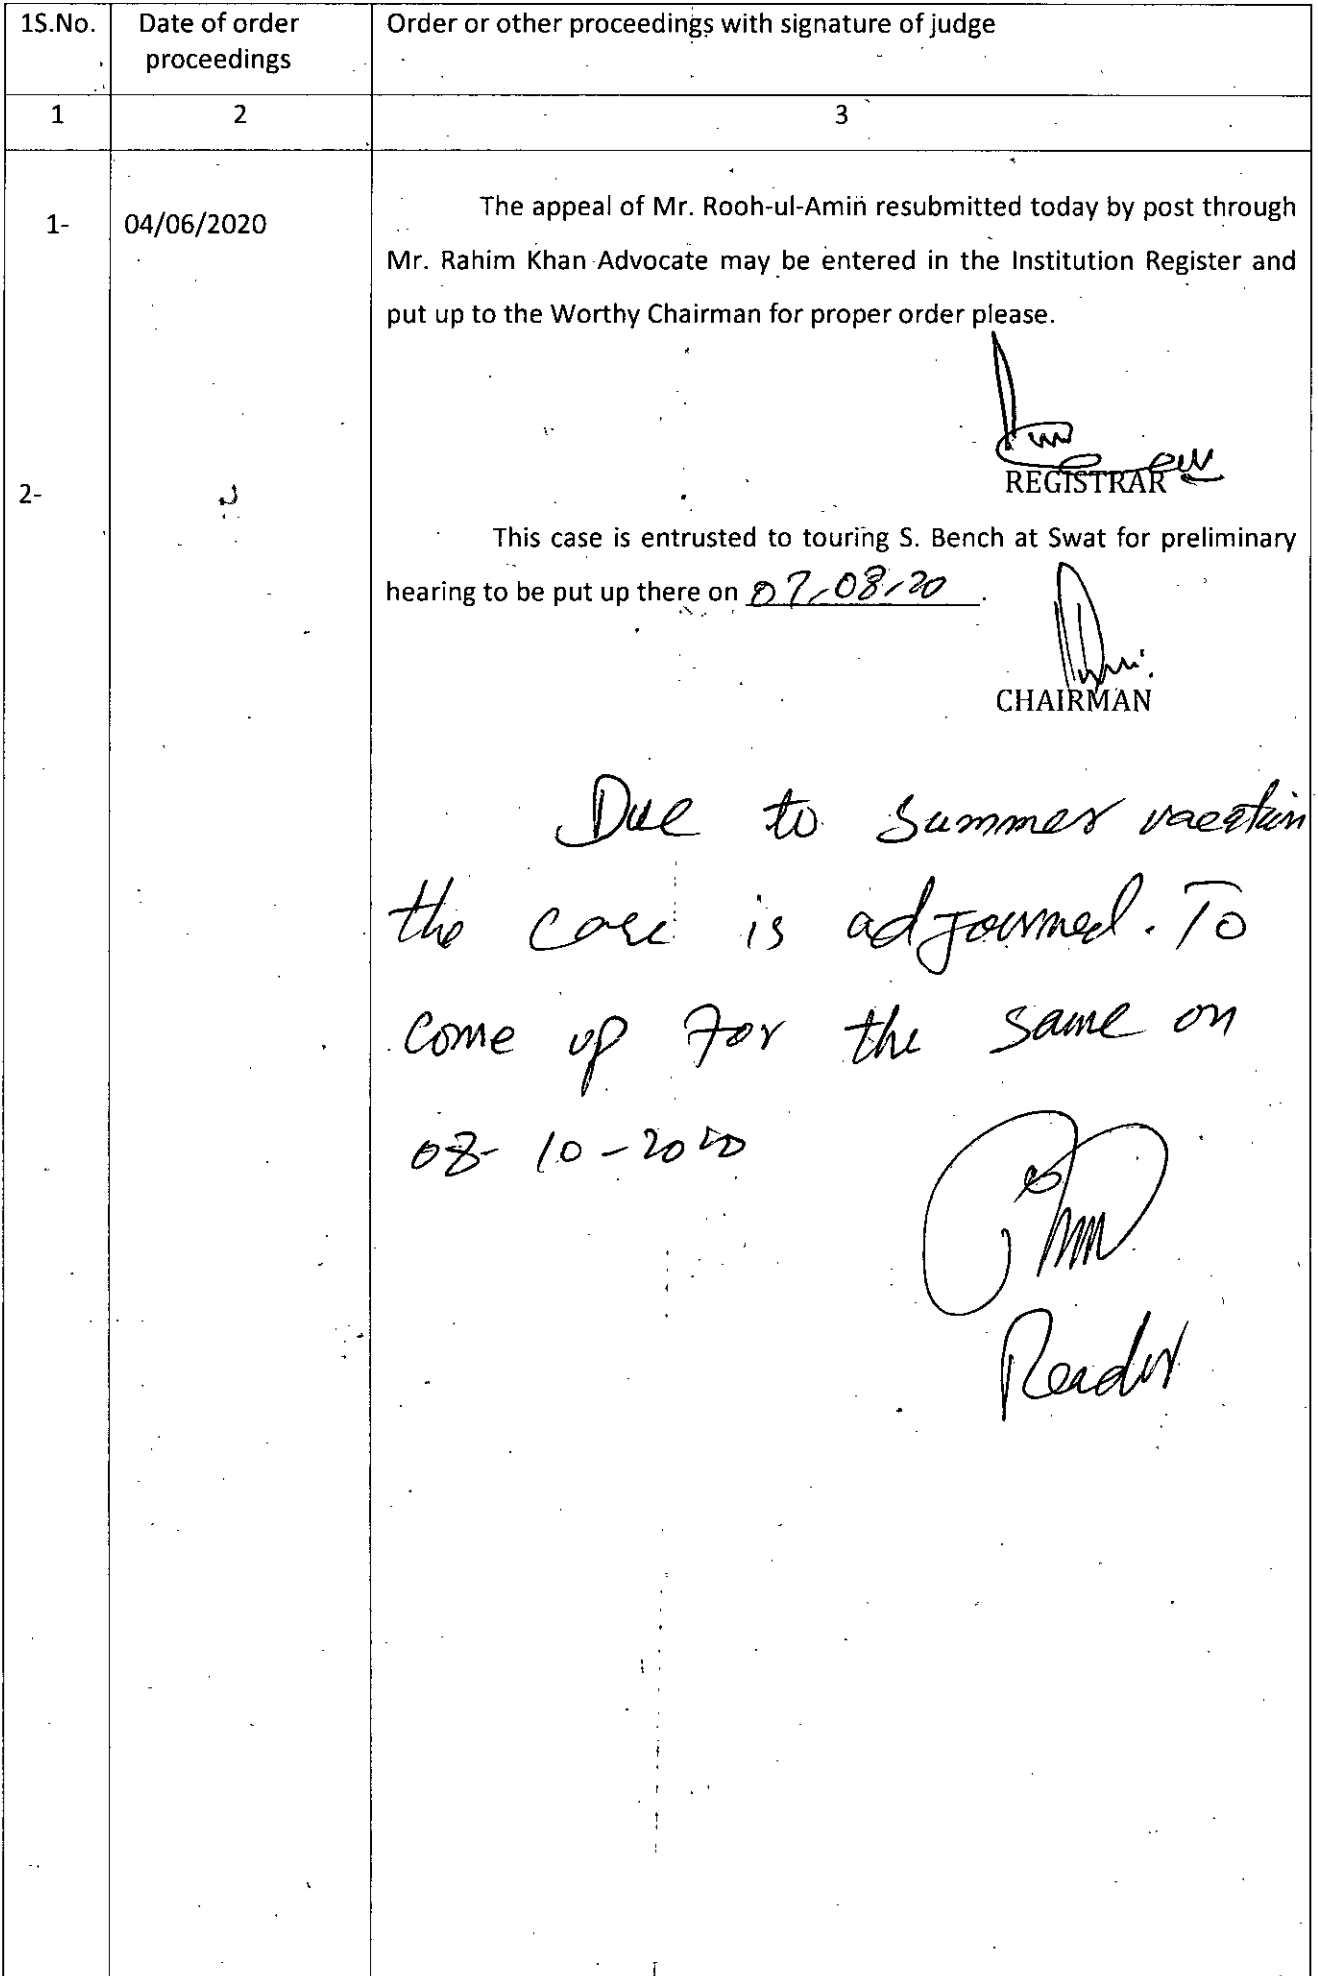 1S.No. Date of order Order or other proceedings with signature of judge
proceedings
1 2 3
1- 04/06/2020 The appeal of Mr. Rooh-ul-Amin resubmitted today by post through
Mr. Rahim Khan Advocate may be entered in the Institution Register and
put up to the Worthy Chairman for proper order please.
REGISTRAR
2-
This case is entrusted to touring S. Bench at Swat for preliminary
hearing to be put up there on 07-08-20.
CHAIRMAN
Due to summer vacation
the case is adjourned. To
come up for the same on
08-10-2020
Reader